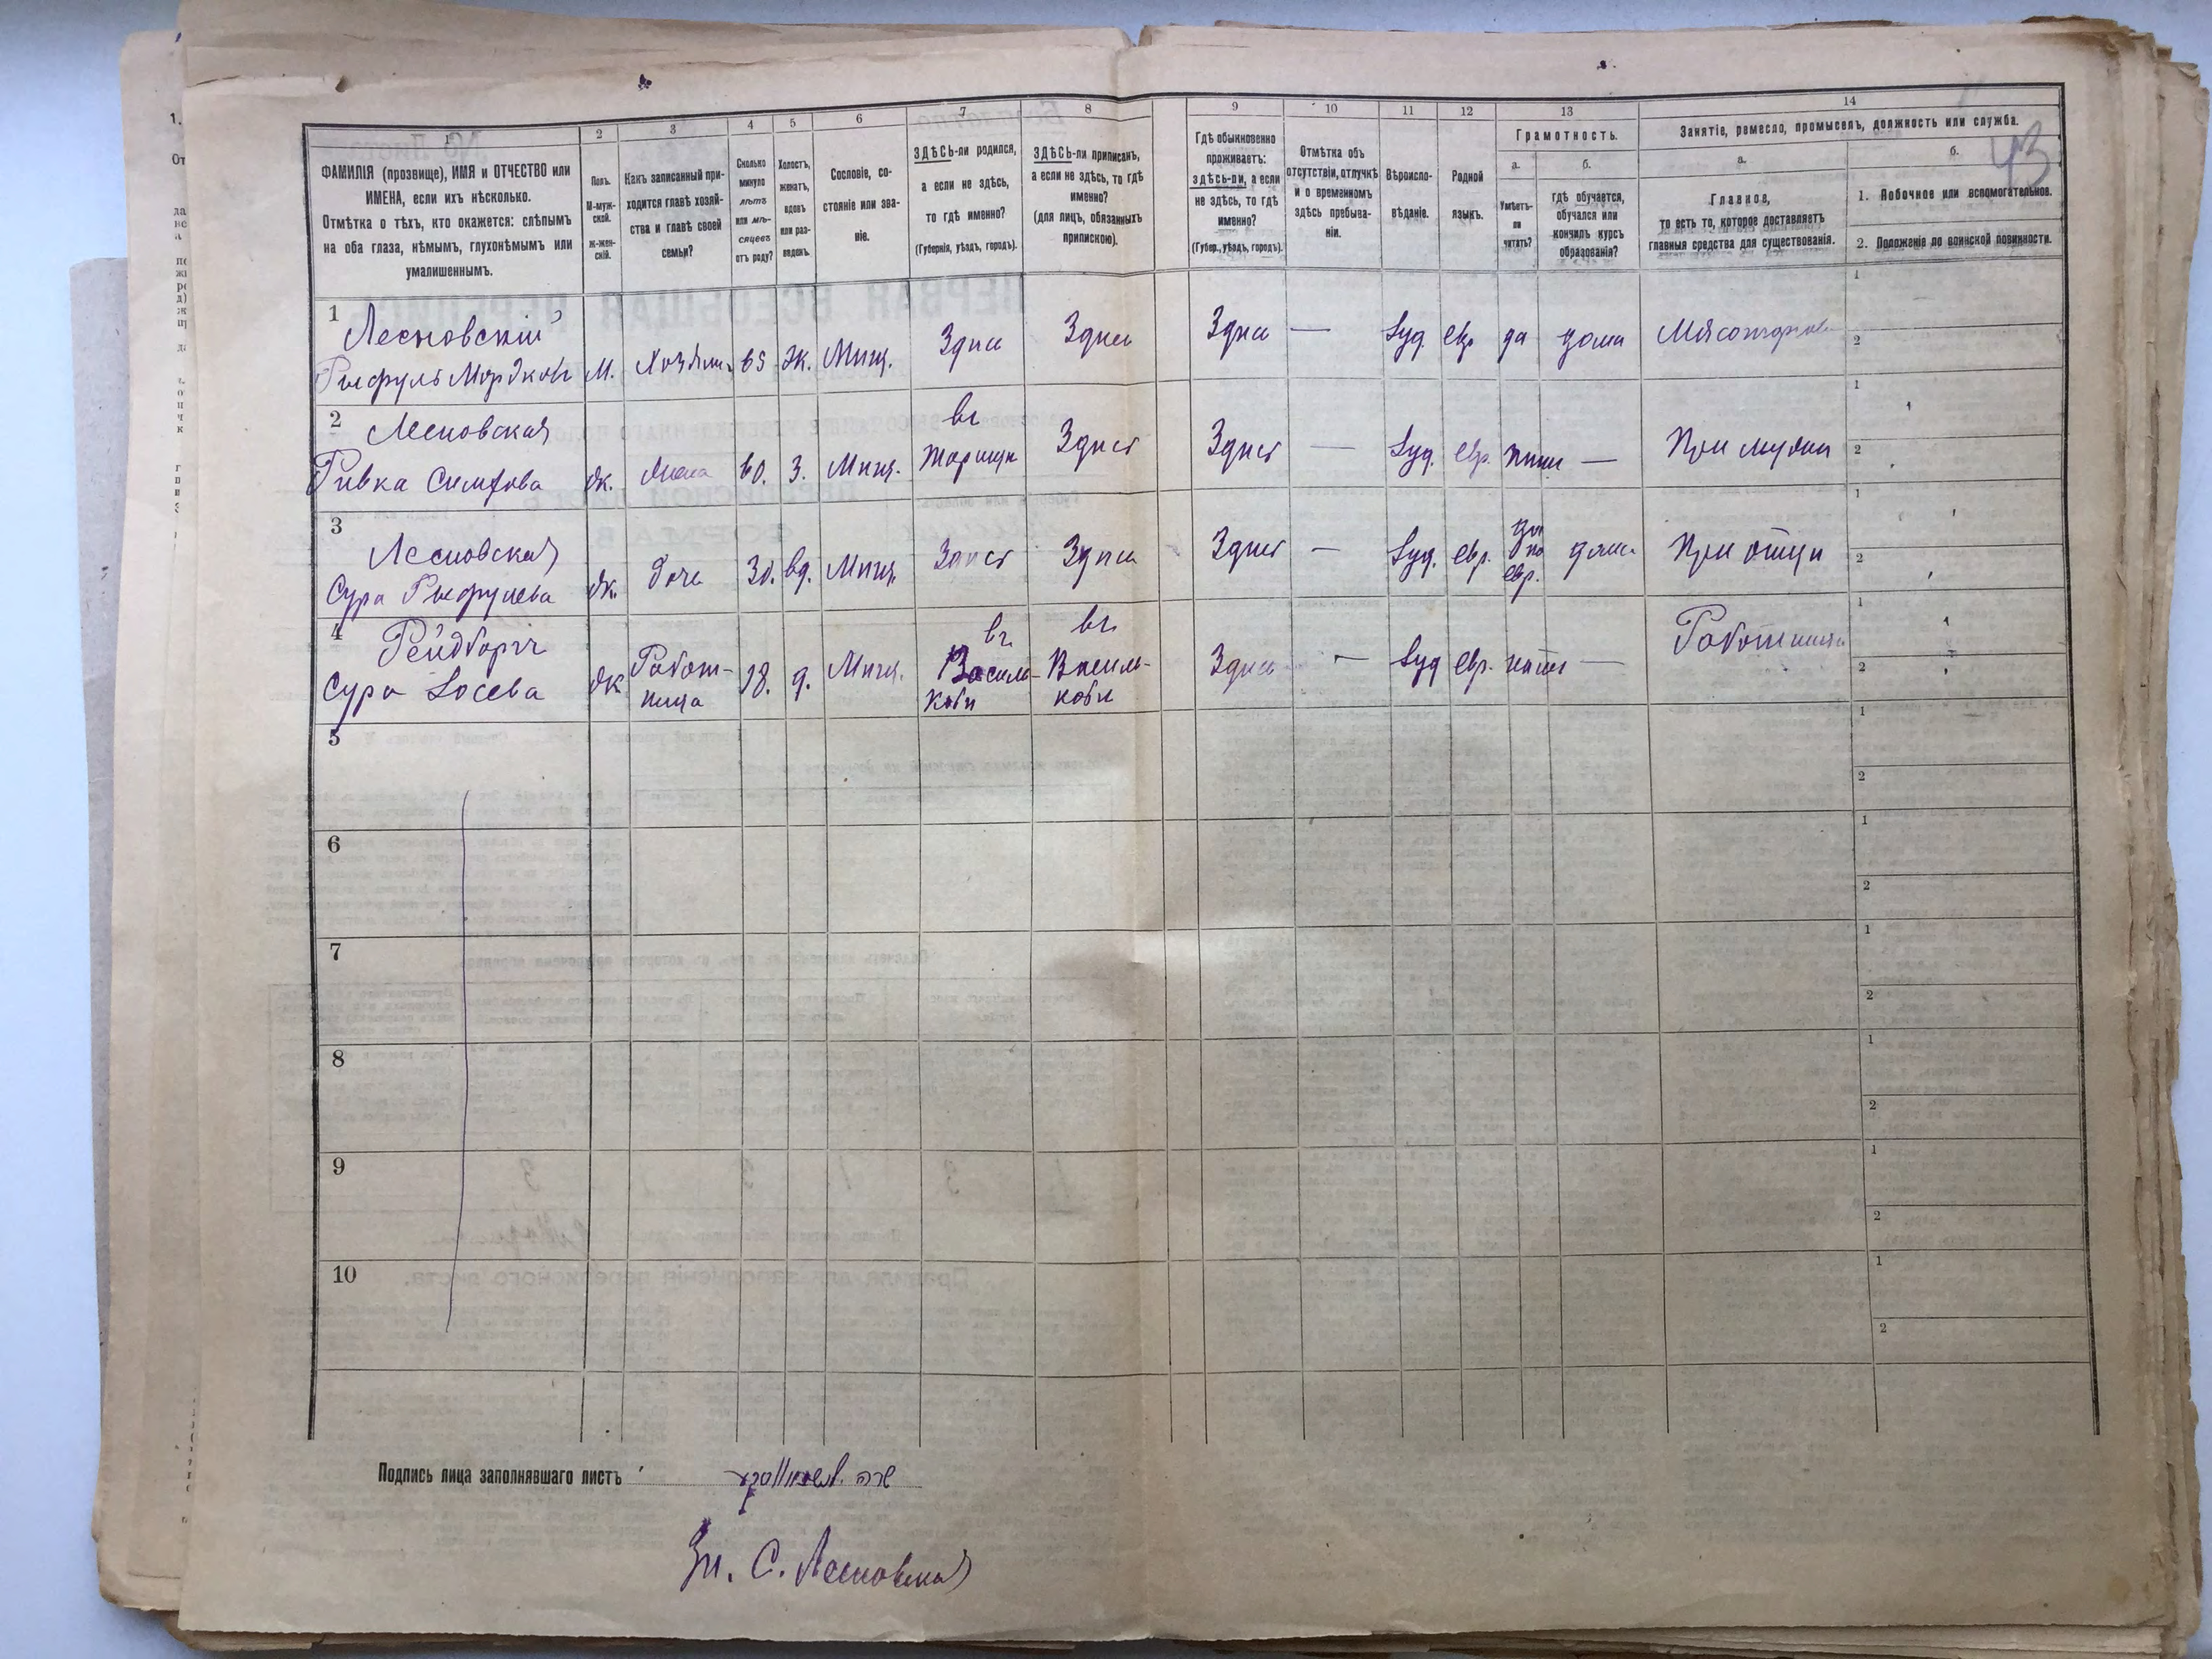 43
1
ФАМИЛІЯ (прозвище), ИМЯ и ОТЧЕСТВО или
ИМЕНА, если ихъ нѣсколько.
Отмѣтка о тѣхъ, кто окажется: слѣпымъ
на оба глаза, нѣмымъ, глухонѣмымъ или
умалишеннымъ.
2
Полъ.
М-муж-
ской.
Ж-жен-
скій.
3
Какъ записанный при-
ходится главѣ хозяй-
ства и главѣ своей
семьи?
4
Сколько
минуло
лѣтъ
или мѣ-
сяцевъ
отъ роду?
5
Холостъ,
женатъ,
вдовъ
или раз-
веденъ.
6
Сословіе, со-
стояніе или зва-
ніе.
7
ЗДѢСЬ-ли родился,
а если не здѣсь,
то гдѣ именно?
(Губернія, уѣздъ, городъ).
8
ЗДѢСЬ-ли приписанъ,
а если не здѣсь, то гдѣ
именно?
(для лицъ, обязанныхъ
припискою).
9
Гдѣ обыкновенно
проживаетъ:
здѣсь-ли, а если
не здѣсь, то гдѣ
именно?
(Губер., уѣздъ, городъ).
10
Отмѣтка объ
отсутствіи, отлучкѣ
и о временномъ
здѣсь пребыва-
ніи.
11
Вѣроиспо-
вѣданіе.
12
Родной
языкъ.
13
Грамотность.
а.
Умѣетъ-
ли
читать?
б.
гдѣ обучается,
обучался или
кончилъ курсъ
образованія?
14
Занятіе, ремесло, промыселъ, должность или служба.
а.
Главное,
то есть то, которое доставляетъ
главныя средства для существованія.
б.
1. Побочное или вспомогательное.
2. Положеніе по воинской повинности.
1
Лесновскій
М. Хозяин. 65 Ж. Мѣщ. Здѣсь Здѣсь Здѣсь — Іуд евр да дома
1
2
2
Лесновская
Ривка ж. Жена 60. З. Мѣщ. Здѣсь Здѣсь — Іуд. евр. нѣтъ — При мужѣ
1
2
3
Лесновская
Сура ж. дочь 30. вд. Мѣщ. Здѣсь Здѣсь Здѣсь — Іуд. евр. по евр. дома При отцѣ
1
2
4
Сура Іосева ж Работ-
ница 18. д. Мѣщ. въ
Василь-
ковѣ въ
Василь-
ковѣ Здѣсь — Іуд евр. нѣтъ — Работница
1
2
5
1
2
6
1
2
7
1
2
8
1
2
9
1
2
10
1
2
Подпись лица заполнявшаго листъ
שרה
С. Лесновская